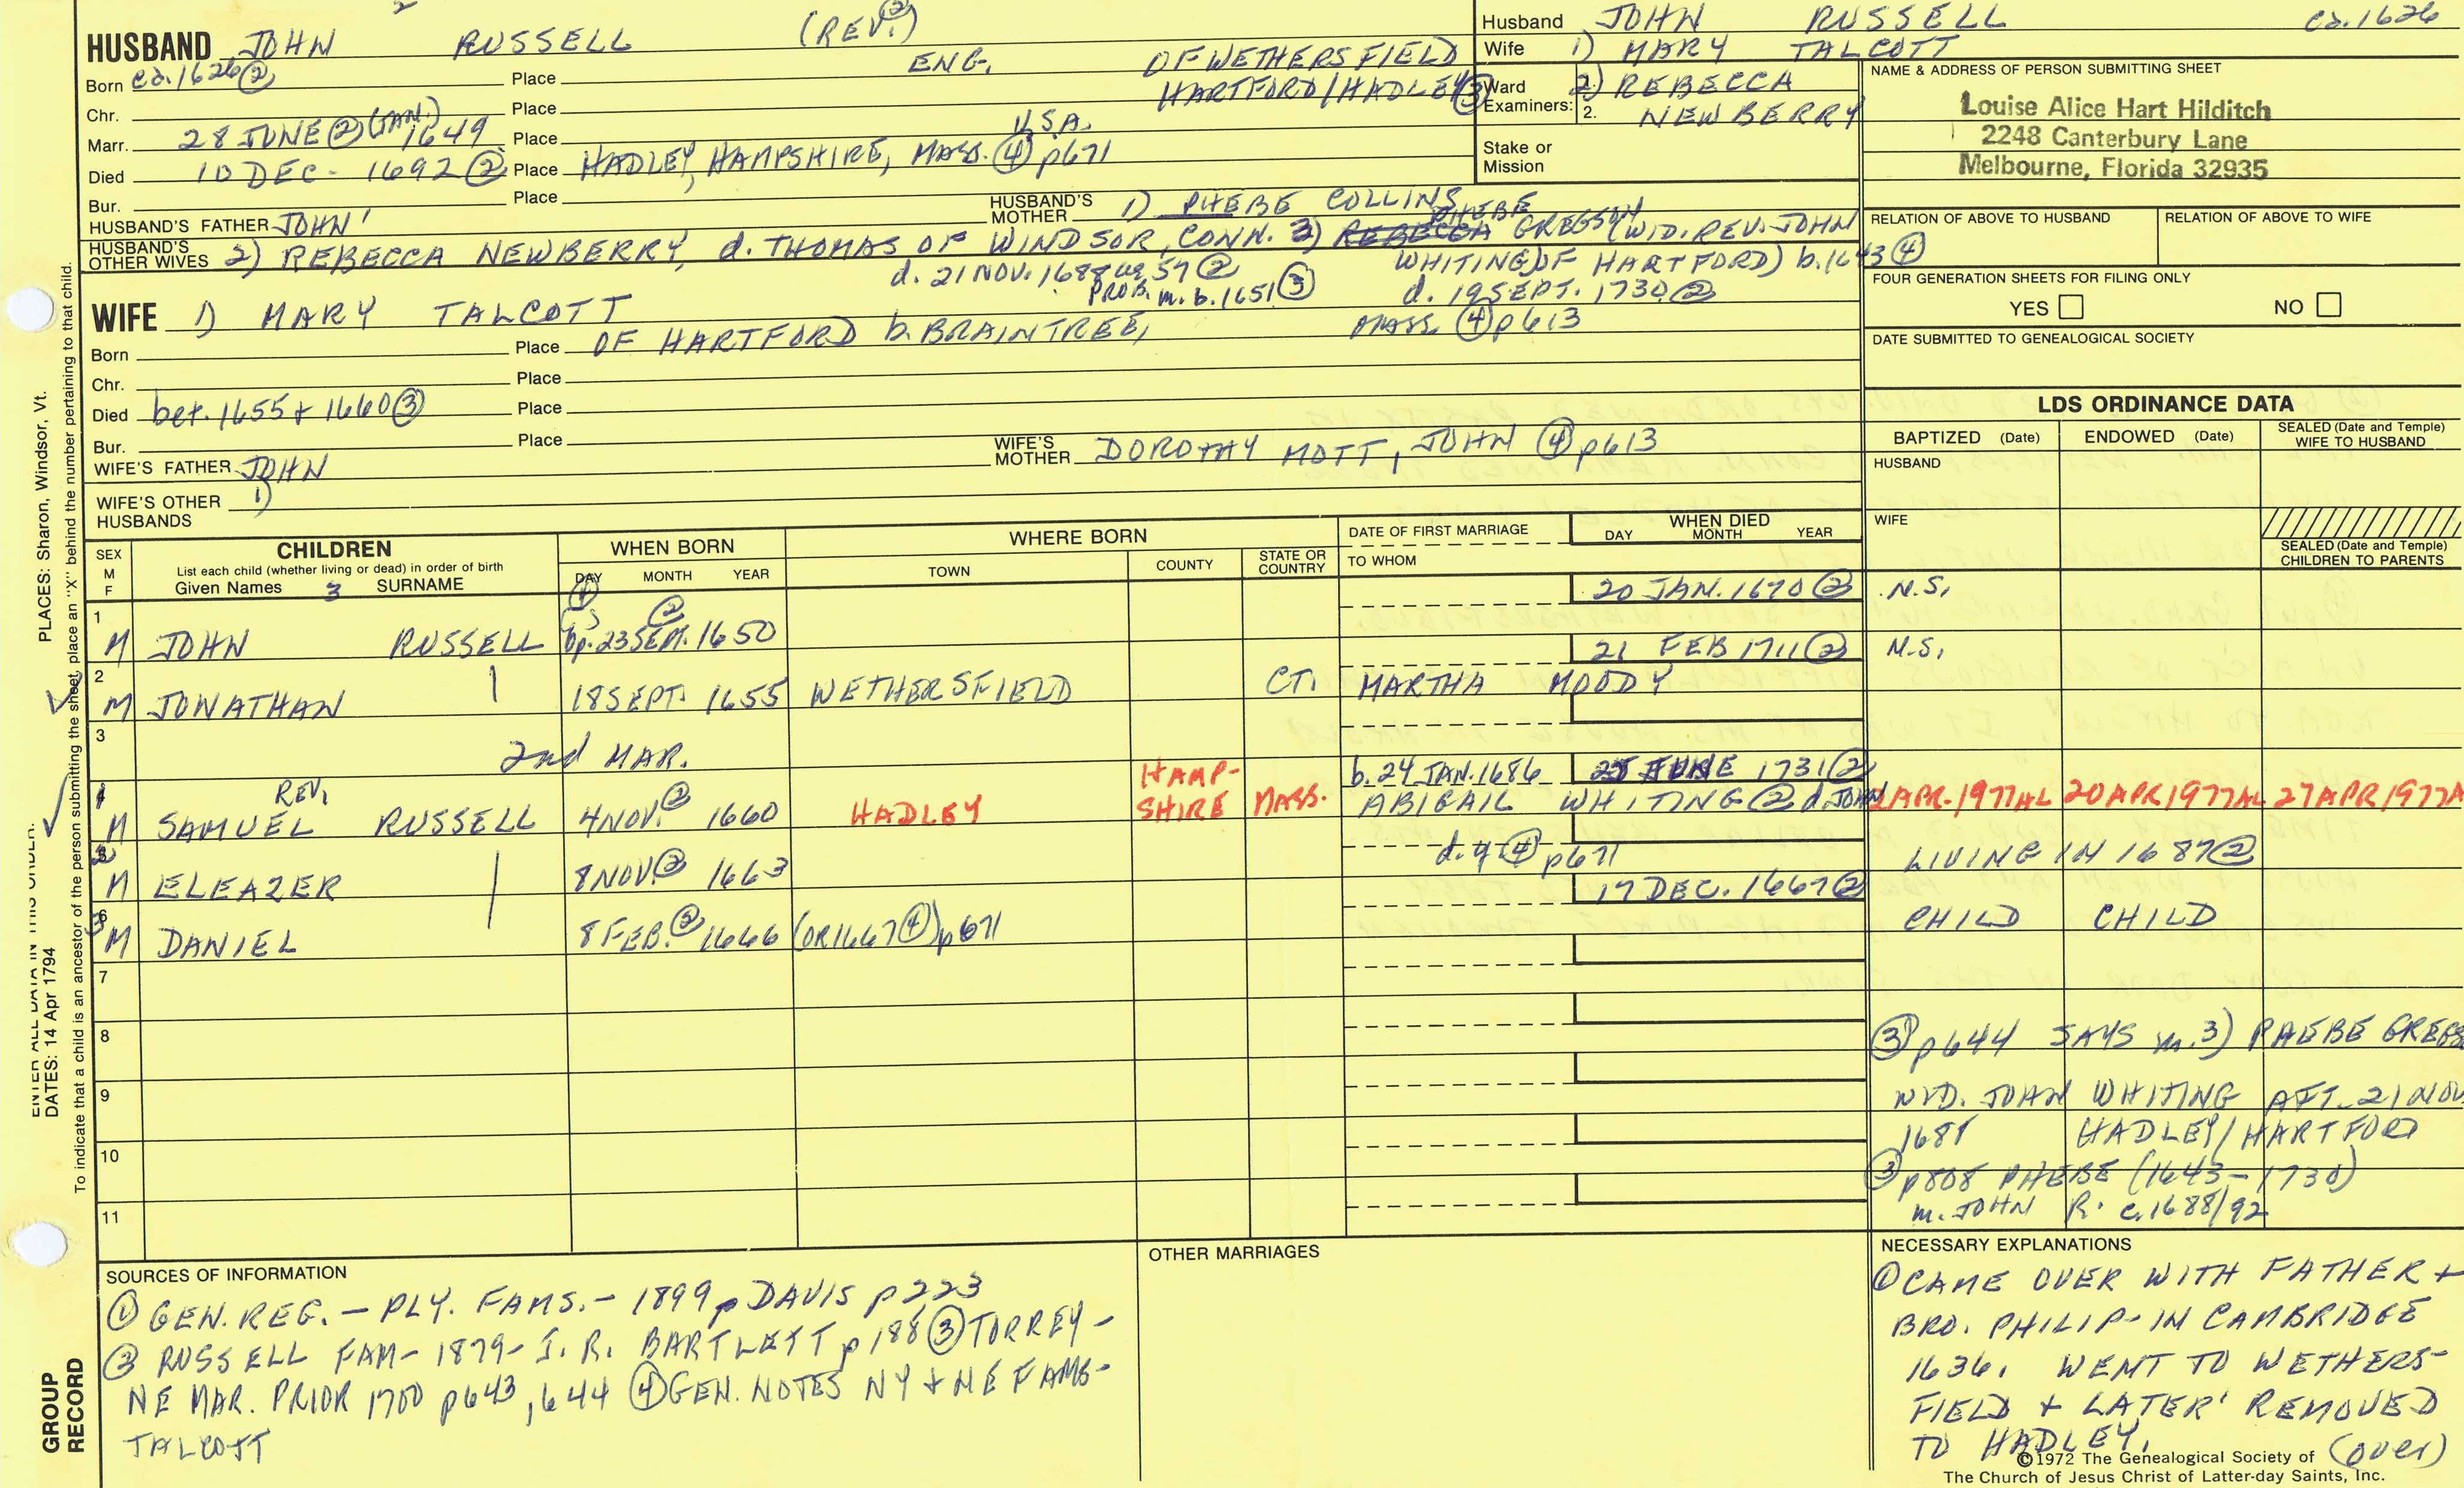 HUSBAND JOHN RUSSELL (REV.) ②
Born ca. 1626② Place ENG. OF WETHERSFIELD
Chr. Place HARTFORD/HADLEY③
Marr. 28 JUNE② (JAN.) 1649 Place U.S.A.
Died 10 DEC. 1692② Place HADLEY, HAMPSHIRE, MASS. ④ p671
Bur. Place
HUSBAND'S FATHER JOHN' HUSBAND'S MOTHER 1) PHEBE COLLINS
HUSBAND'S OTHER WIVES 2) REBECCA NEWBERRY, d. THOMAS OF WINDSOR, CONN. 3) PHEBE GREGSON (WID. REV. JOHN
d. 21 NOV. 1688 ag 57② WHITING OF HARTFORD) b. 1643④
PROB. m. b. 1651③ d. 19 SEPT. 1730②
WIFE 1) MARY TALCOTT
Born Place OF HARTFORD b. BRAINTREE, MASS. ④ p613
Chr. Place
Died bet. 1655 + 1660③ Place
Bur. Place
WIFE'S FATHER JOHN WIFE'S MOTHER DOROTHY MOTT, JOHN ④ p613
WIFE'S OTHER HUSBANDS 1)
Husband JOHN RUSSELL ca. 1626
Wife 1) MARY TALCOTT
Ward 1. 2) REBECCA
Examiners: 2. NEWBERRY
Stake or Mission
NAME & ADDRESS OF PERSON SUBMITTING SHEET
Louise Alice Hart Hilditch
2248 Canterbury Lane
Melbourne, Florida 32935
RELATION OF ABOVE TO HUSBAND RELATION OF ABOVE TO WIFE
FOUR GENERATION SHEETS FOR FILING ONLY
YES NO
DATE SUBMITTED TO GENEALOGICAL SOCIETY
LDS ORDINANCE DATA
BAPTIZED (Date) ENDOWED (Date) SEALED (Date and Temple) WIFE TO HUSBAND
HUSBAND
WIFE
SEALED (Date and Temple) CHILDREN TO PARENTS
SEX M F CHILDREN WHEN BORN WHERE BORN DATE OF FIRST MARRIAGE WHEN DIED
List each child (whether living or dead) in order of birth
Given Names 3 SURNAME DAY MONTH YEAR TOWN COUNTY STATE OR COUNTRY TO WHOM DAY MONTH YEAR
1 20 JAN. 1670② N.S.
M JOHN RUSSELL bp. 23 SEPT. 1650 ④ ②
2 21 FEB 1711② N.S.
M JONATHAN 18 SEPT. 1655 WETHERSFIELD CT. MARTHA MOODY
3 2nd MAR.
b. 24 JAN. 1686 JUNE 1731②
4 M REV. SAMUEL RUSSELL 4 NOV.② 1660 HADLEY HAMP-SHIRE MASS. ABIGAIL WHITING② d JOHN APR. 1977AL 20 APR 1977AL 27 APR 1977A
5 M ELEAZER 8 NOV.② 1663 d. y. ④ p671 LIVING IN 1687②
17 DEC. 1667②
6 M DANIEL 8 FEB.② 1666 (OR 1667④) p671 CHILD CHILD
7
8
9
10
11
③ p644 SAYS m. 3) PHEBE GREGS
WID. JOHN WHITING AFT. 21 NOV
1688 HADLEY/HARTFORD
③ p808 PHEBE (1643-1730)
m. JOHN R. c. 1688/92
SOURCES OF INFORMATION
① GEN. REG. - PLY. FAMS. - 1899 DAVIS p223
② RUSSELL FAM - 1879 - J. R. BARTLETT p188 ③ TORREY -
NE MAR. PRIOR 1700 p643, 644 ④ GEN. NOTES NY + NE FAMS -
TALCOTT
OTHER MARRIAGES
NECESSARY EXPLANATIONS
① CAME OVER WITH FATHER +
BRO. PHILIP - IN CAMBRIDGE
1636. WENT TO WETHERS-
FIELD + LATER REMOVED
TO HADLEY. (over)
©1972 The Genealogical Society of
The Church of Jesus Christ of Latter-day Saints, Inc.
PLACES: Sharon, Windsor, Vt.
ENTER ALL DATA IN THIS ORDER:
DATES: 14 Apr 1794
To indicate that a child is an ancestor of the person submitting the sheet, place an "X" behind the number pertaining to that child.
GROUP RECORD